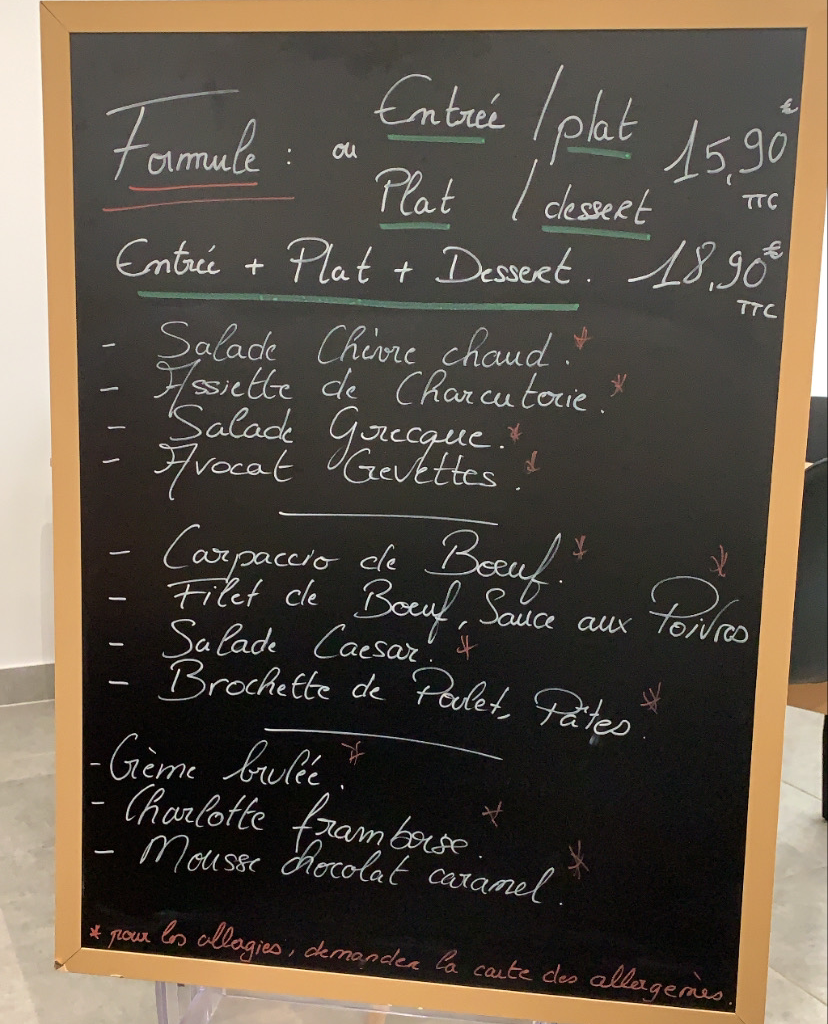 Formule : ou Entrée / plat 15,90 €
Plat / dessert TTC
Entrée + Plat + Dessert. 18,90 €
TTC
- Salade Chèvre chaud. *
- Assiette de Charcuterie. *
- Salade Grecque. *
- Avocat Crevettes. *
- Carpaccio de Boeuf. *
- Filet de Boeuf, Sauce aux Poivres *
- Salade Caesar. *
- Brochette de Poulet, Pâtes. *
- Crème brulée. *
- Charlotte framboise. *
- Mousse chocolat caramel. *
* pour les allergies, demander la carte des allergenès.